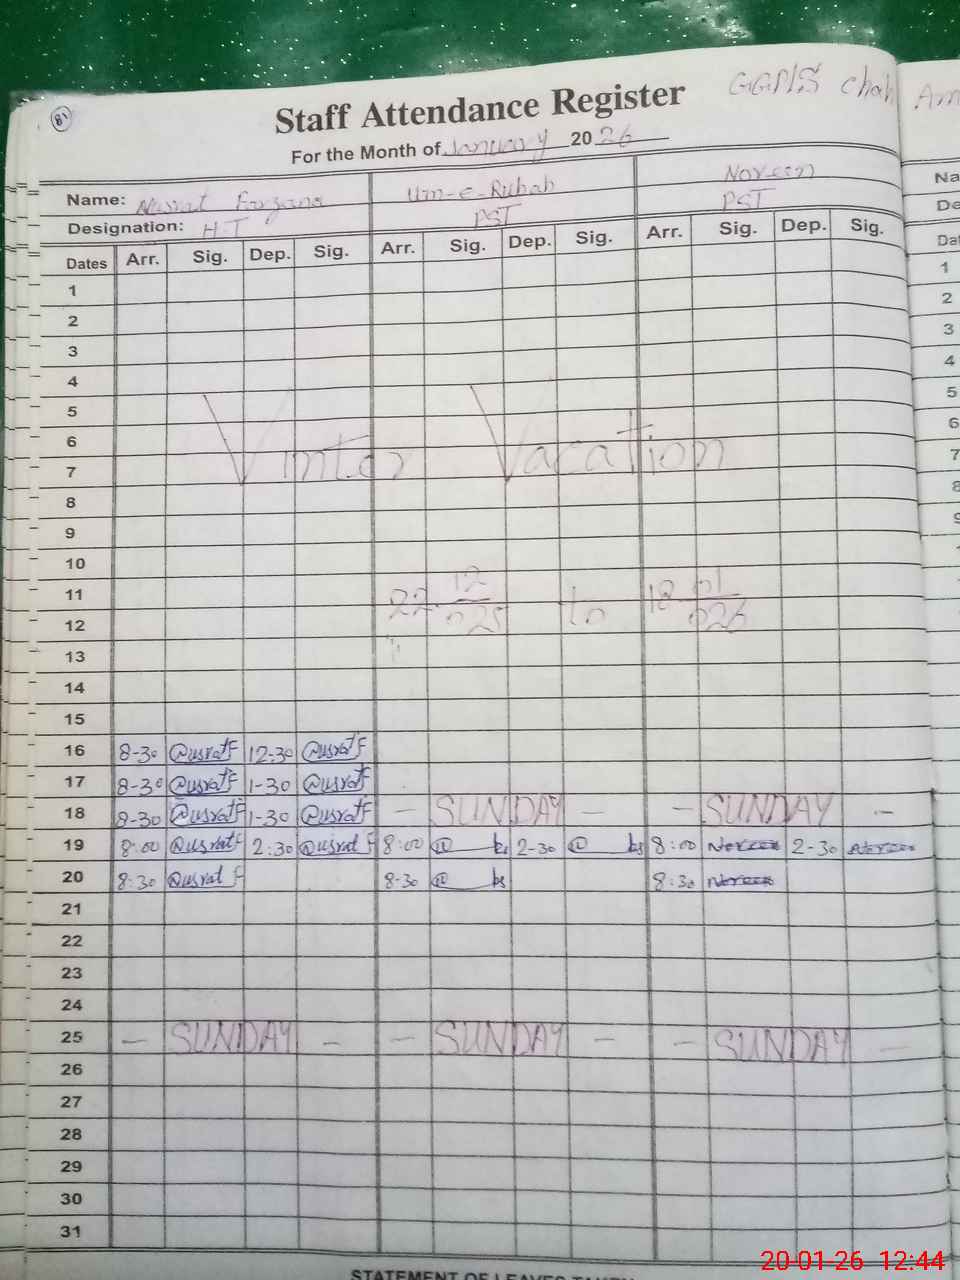 81
Staff Attendance Register GGPS Chah Am
For the Month of January 2026
Name: Nusrat Farzana Um-e-Rubab Noreen Na
Designation: H.T PST PST De
Dates Arr. Sig. Dep. Sig. Arr. Sig. Dep. Sig. Arr. Sig. Dep. Sig. Dat
1 1
2 2
3 3
4 4
5 5
6 6
Vinter Vacation
7 7
8 8
9 9
10
11 22-12/025 to 18-01/026
12
13
14
15
16 8-30 NusratF 12-30 NusratF
17 8-30 NusratF 1-30 NusratF
18 8-30 NusratF 1-30 NusratF - SUNDAY - - SUNDAY -
19 8:00 NusratF 2:30 Nusrat F 8:00 2-30 8:00 Noreen 2-30 Noreen
20 8:30 Nusrat F 8-30 8:30 Noreen
21
22
23
24
25 - SUNDAY - - SUNDAY - - SUNDAY -
26
27
28
29
30
31
STATEMENT OF LEAVES TAKEN
20-01-26 12:44